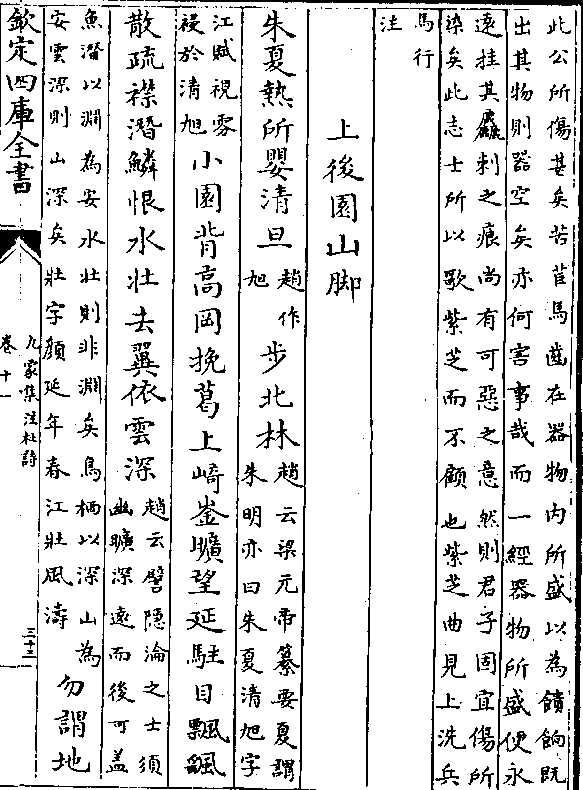 此公所傷甚矣苦苣馬齒在器物内所盛以為饋餉既
出其物則器空矣亦何害事哉而一經器物所盛便永
遠挂其麤刺之痕尚有可惡之意然則君子固宜傷所
染矣此志士所以歌紫芝而不顧也紫芝曲見上洗兵
馬行
注
上後園山脚
朱夏熱所嬰清旦
趙作
旭
步北林
趙云梁元帝纂要夏謂
朱明亦曰朱夏清旭字
江賦視雰
祲於清旭
小園背高岡挽葛上崎崟曠望延駐目飄颻
散疏襟潛鱗恨水壯去翼依雲深
趙云譬隱淪之士須
幽曠深遠而後可蓋
魚潛以淵為安水壯則非淵矣鳥栖以深山為
安雲深則山深矣壯字顏延年春江壯風濤
勿謂地
欽定四庫全書
九家集注杜詩
卷十一
三十三